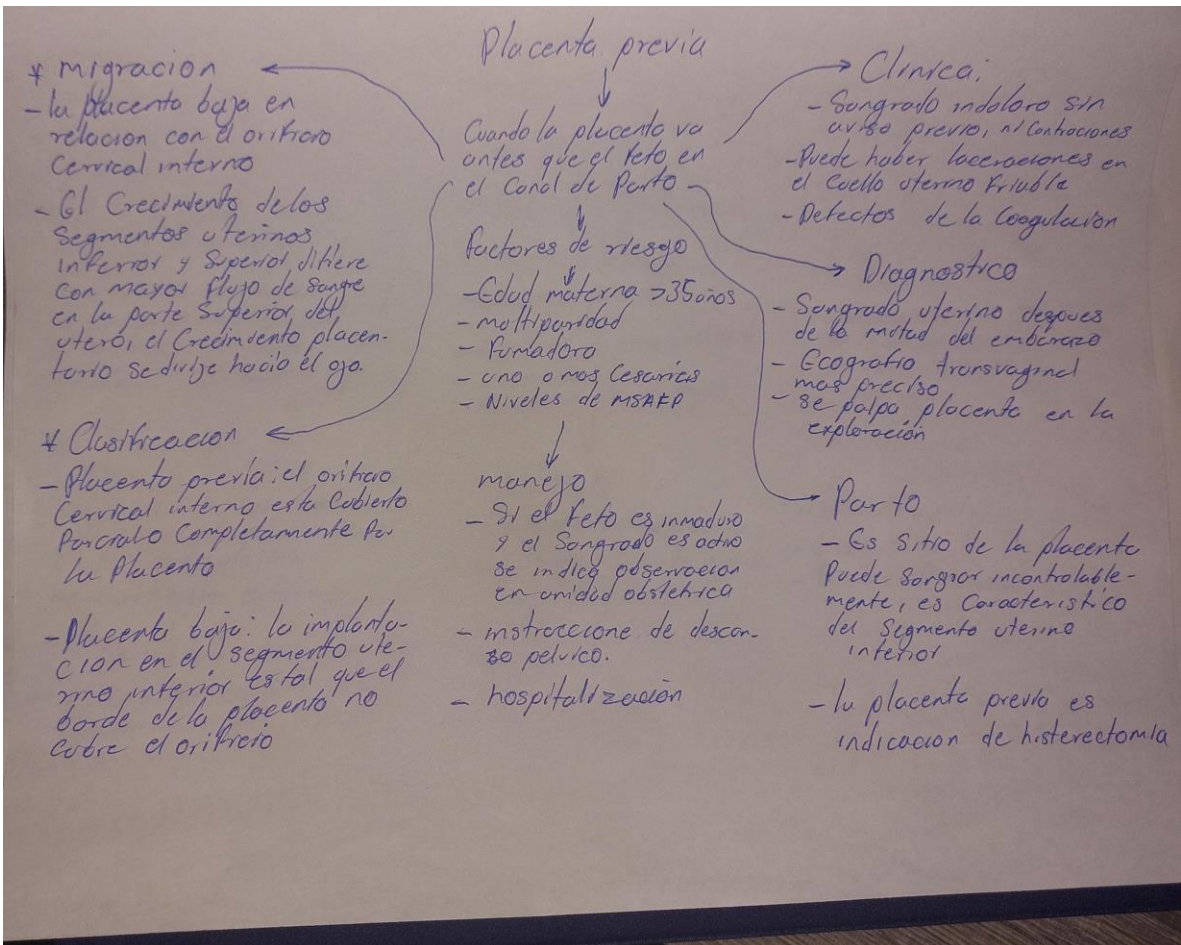 Placenta previa
Cuando la placenta va
antes que el feto en
el Canal de Parto
* migracion
- la placenta baja en
relacion con el orificio
Cervical interno
- El Crecimiento de los
Segmentos uterinos
inferior y Superior difiere
con mayor flujo de sangre
en la parte Superior del
utero, el Crecimiento placen-
tario se dirije hacia el ojo.
* Clasificacion
- Placenta previa: el orificio
Cervical interno esta Cubierto
Parcial o Completamente Por
la Placenta
- Placenta baja: la implanta-
cion en el segmento ute-
rino inferior es tal que el
borde de la placenta no
cubre el orificio
factores de riesgo
- Edad materna >35 años
- multiparidad
- Fumadora
- una o mas Cesarias
- Niveles de MSAFP
manejo
- Si el feto es inmaduro
y el Sangrado es activo
se indica observacion
en unidad obstetrica
- instruccione de descan-
so pelvico.
- hospitalización
Clinica:
- Sangrado indoloro sin
aviso previo, ni Contraciones
- Puede haber laceraciones en
el Cuello uterino friable
- Defectos de la Coagulacion
Diagnostico
- Sangrado uterino despues
de la mitad del embarazo
- Ecografia transvaginal
mas preciso
- se palpa placenta en la
exploración
Parto
- Es Sitio de la placenta
Puede Sangrar incontrolable-
mente, es Caracteristico
del Segmento uterino
inferior
- la placenta previa es
indicacion de histerectomia